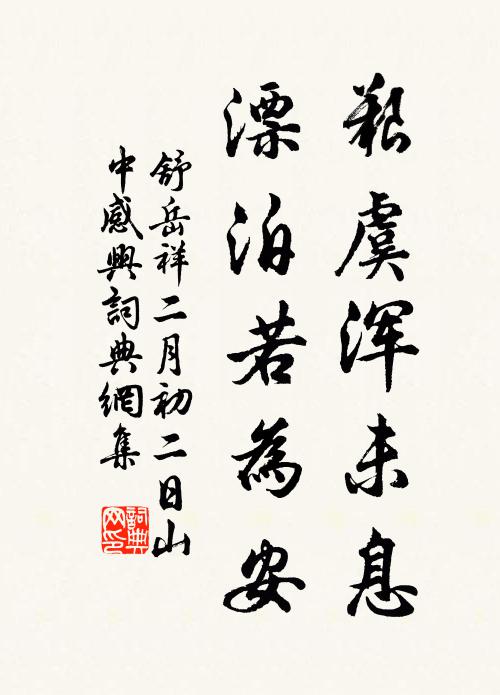 艱虞浑未息
漂泊若為安
舒岳祥二月初二日山
中感興詞典網集
詞典
网印